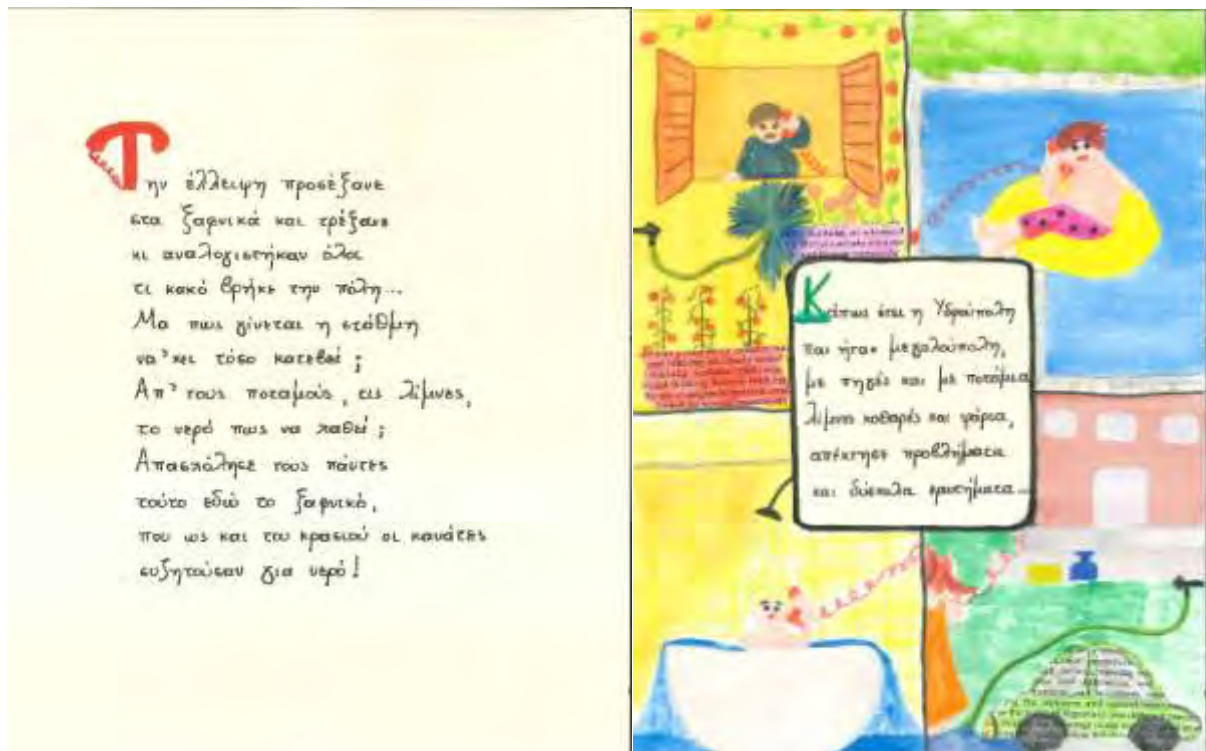 Την έλλειψη προσέξανε
στα ξαφνικά και τρέξανε
κι αναλογιστήκαν όλοι
τι κακό βρήκε την πόλη...
Μα πως γίνεται η στάθμη
να 'χει τόσο κατεβεί ;
Απ' τους ποταμούς, τις λίμνες,
το νερό πως να χαθεί ;
Απασχόλησε τους πάντες
τούτο εδώ το ξαφνικό,
που ως και του κρασιού οι κανάτες
συζητούσαν για νερό !
Κάπως έτσι η Υδρούπολη
που ήταν μεγαλούπολη,
με πηγές και με ποτάμια
λίμνες καθαρές και ψάρια,
απέκτησε προβλήματα
και δύσκολα ερωτήματα...